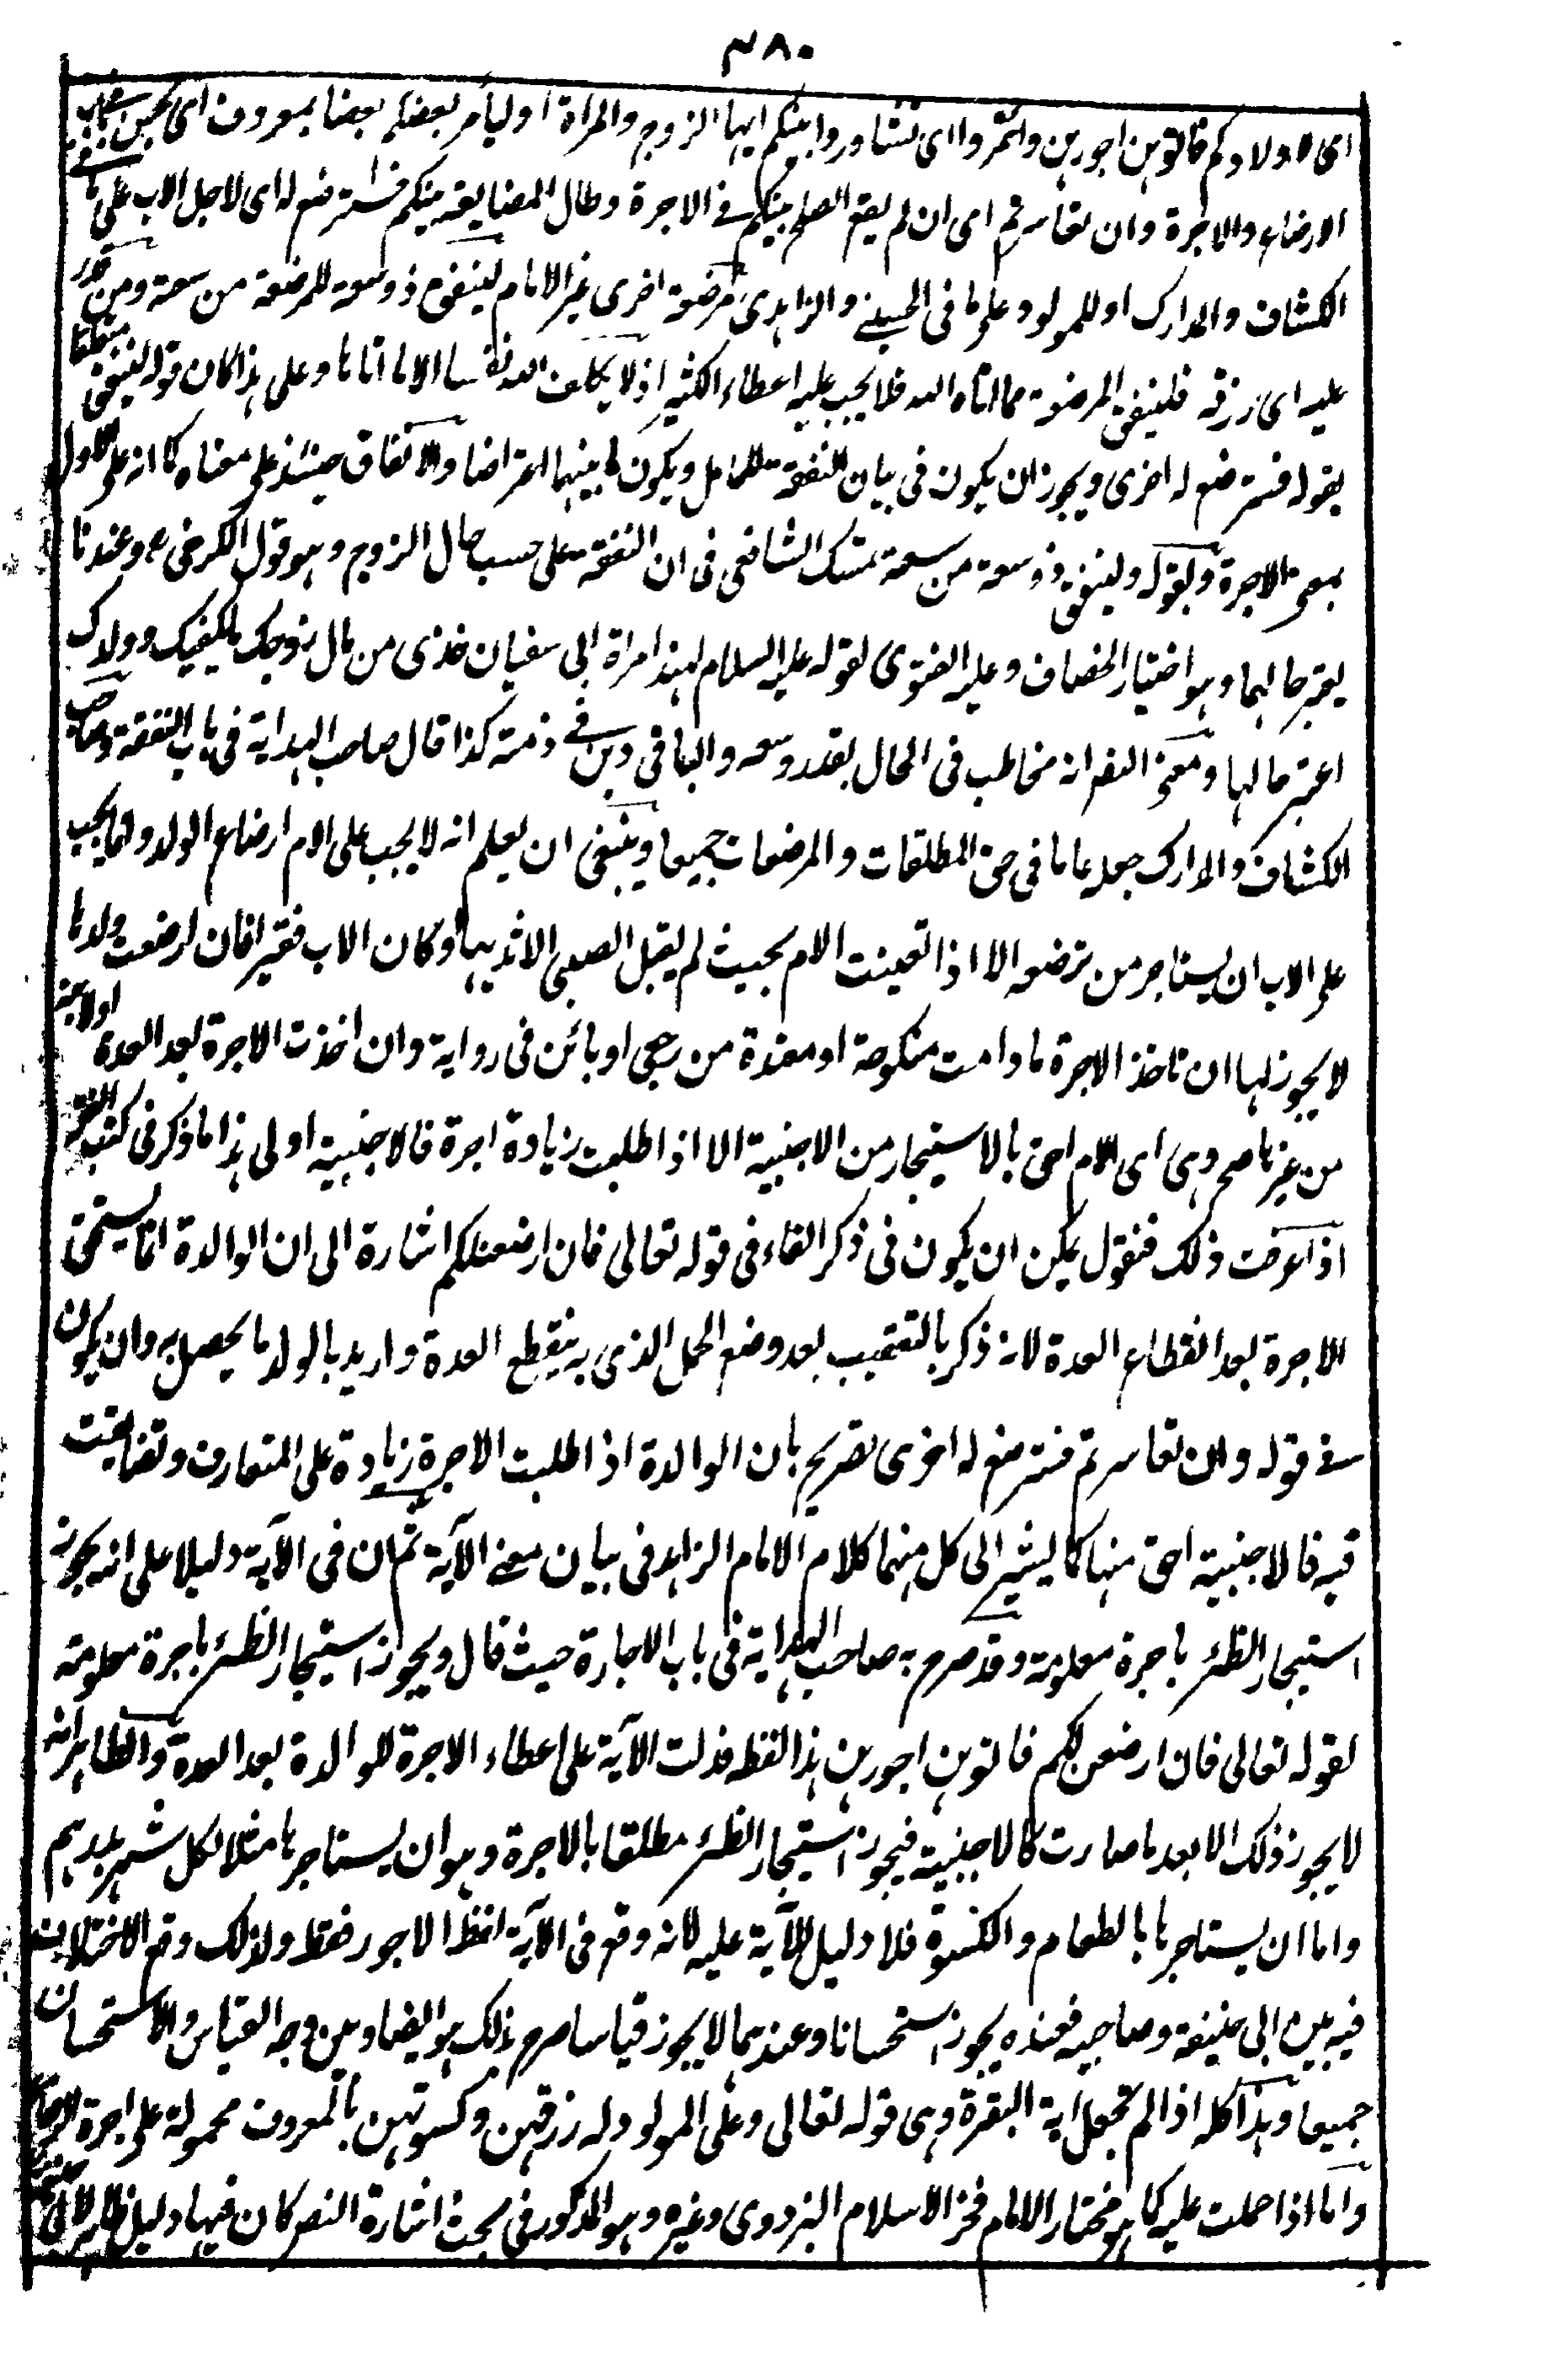 ٣٨٠
اى اولادكم فاتوهن اجورهن واتمروا اى تشاوروا بينكم ايها الزوج والمراة اوليأمر بعضكم بعضا بمعروف اى بحسن
الارضاع والاجرة وان تعاسرتم اى ان لم يقع الصلح بينكم فى الاجرة وطال المضايقه بينكم فسترضع له اى لاجل الاب على ما فى
الكشاف والمدارك او للمولود على ما فى الحسينى والزاهدى مرضعة اخرى غير الام لينفق ذو سعة للمرضعة من سعة ومن قدر
عليه اى رزقه فلينفق المرضعة مما اتاه الله فلا يجب عليه اعطاء الكثير اذ لا يكلف الله نفسا الا ما اتاها وعلى هذا كان قوله لينفق متعلقا
بقوله فسترضع له اخرى ويجوز ان يكون فى بيان النفقة للحامل ويكون ما بينهما اعتراضا والانفاق حينئذ على معناه كما انه على الاول
بمعنى الاجرة وبقوله ولينفق ذو سعة من سعة تمسك الشافعى فى ان النفقة على حسب حال الزوج وهو قول الكرخى رح وعندنا
يعتبر حالهما وهو اختيار الخصاف وعليه الفتوى لقوله عليه السلام لهند امراة ابى سفيان خذى من مال زوجك ما يكفيك وولدك
اعتبر حالها ومعنى النص انه مخاطب فى الحال بقدر وسعه والباقى دين فى ذمته كذا قال صاحب الهداية فى باب النفقة وصاحب
الكشاف والمدارك جعله عاما فى حق المطلقات والمرضعات جميعا وينبغى ان يعلم انه لا يجب على الام ارضاع الولد وانما يجب
على الاب ان يستاجر من ترضعه الا اذا تعينت الام بحيث لم يقبل الصبى الا ثديها وكان الاب فقيرا فان ارضعت ولدها
لا يجوز لها ان تاخذ الاجرة ما دامت منكوحة او معتدة من رجعى او بائن فى رواية وان اخذت الاجرة بعد العدة اولابنه
من غيرها صح وهى اى الام احق بالاستيجار من الاجنبية الا اذا طلبت زيادة اجرة فالاجنبية اولى هذا ما ذكر فى كتب الفقه
اذا عرفت ذلك فنقول يمكن ان يكون فى ذكر الفاء فى قوله تعالى فان ارضعنلكم اشارة الى ان الوالدة انما يستحق
الاجرة بعد انقطاع العدة لانه ذكر بالتعقيب بعد وضع الحمل الذى به ينقطع العدة واريد بالولد ما يحصل به وان يكون
فى قوله وان تعاسرتم فسترضع له اخرى تصريح بان الوالدة اذا طلبت الاجرة زيادة على المتعارف وتضايقت
فيه فالاجنبية احق منها كما ليشير الى كل منهما كلام الامام الزاهد فى بيان معنى الآية ثم ان فى الآية دليلا على انه يجوز
استيجار الظئر باجرة معلومة وقد صرح به صاحب الهداية فى باب الاجارة حيث قال ويجوز استيجار الظئر باجرة معلومة
لقوله تعالى فان ارضعن لكم فاتوهن اجورهن هذا لفظه فدلت الآية على اعطاء الاجرة للوالدة بعد العدة والظاهر انه
لا يجوز ذلك الا بعد ما صارت كالاجنبية فيجوز استيجار الظئر مطلقا بالاجرة وهو ان يستاجرها مثلا لكل شهر بدرهم
واما ان يستاجرها بالطعام والكسوة فلا دليل للآية عليه لانه وقع فى الآية لفظ الاجور فقط ولذلك وقع الاختلاف
فيه بين ابى حنيفة وصاحبيه فعنده يجوز استحسانا وعندهما لا يجوز قياسا صرح بذلك هو ايضا وبين وجه القياس والاستحسان
جميعا وهذا كله اذا لم تجعل اية البقرة وهى قوله تعالى وعلى المولود له رزقهن وكسوتهن بالمعروف محمولة على اجرة الارضاع
واما اذا حملت عليه كما هو مختار الامام فخر الاسلام البزدوى وغيره وهو المذكور فى بحث اشارة النص كان فيها دليل ظاهر